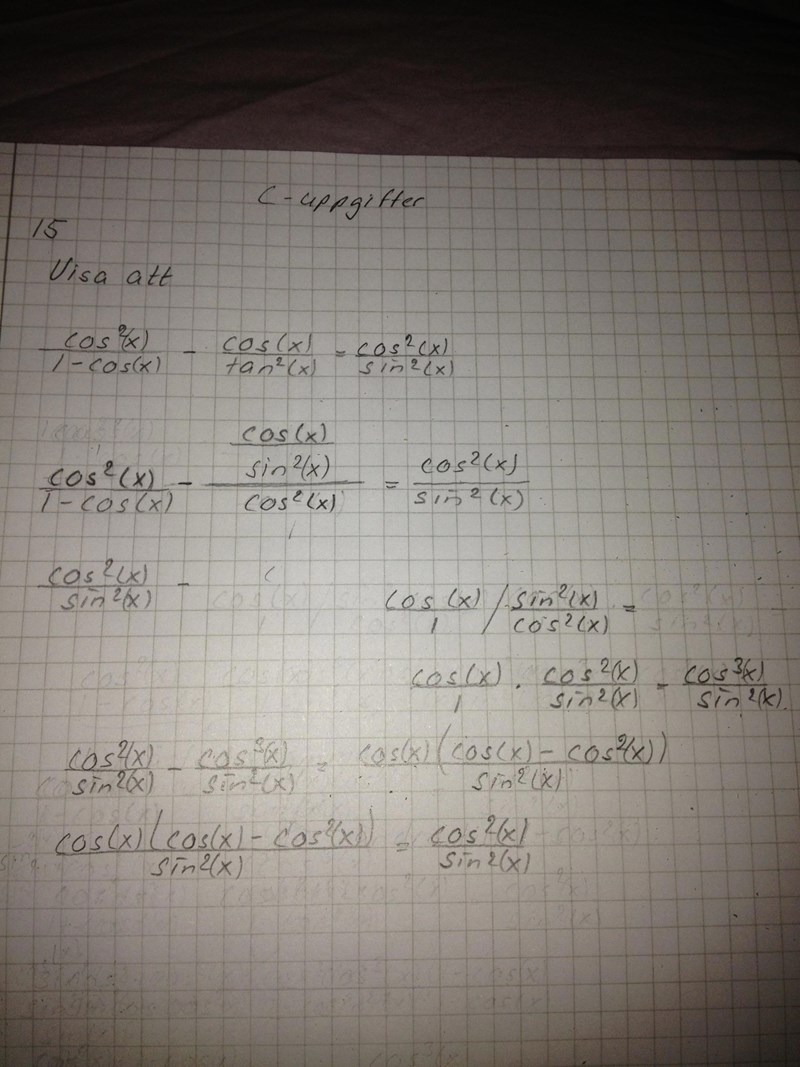 C-uppgifter
15
Visa att
cos²(x)/(1-cos(x)) - cos(x)/tan²(x) = cos²(x)/sin²(x)
cos²(x)/(1-cos(x)) - cos(x)/(sin²(x)/cos²(x)) = cos²(x)/sin²(x)
cos²(x)/sin²(x) - (
cos(x)/1 / sin²(x)/cos²(x) =
cos(x)/1 · cos²(x)/sin²(x) = cos³(x)/sin²(x)
cos²(x)/sin²(x) - cos³(x)/sin²(x) = cos(x)(cos(x) - cos²(x))/sin²(x)
cos(x)(cos(x) - cos²(x))/sin²(x) = cos²(x)/sin²(x)